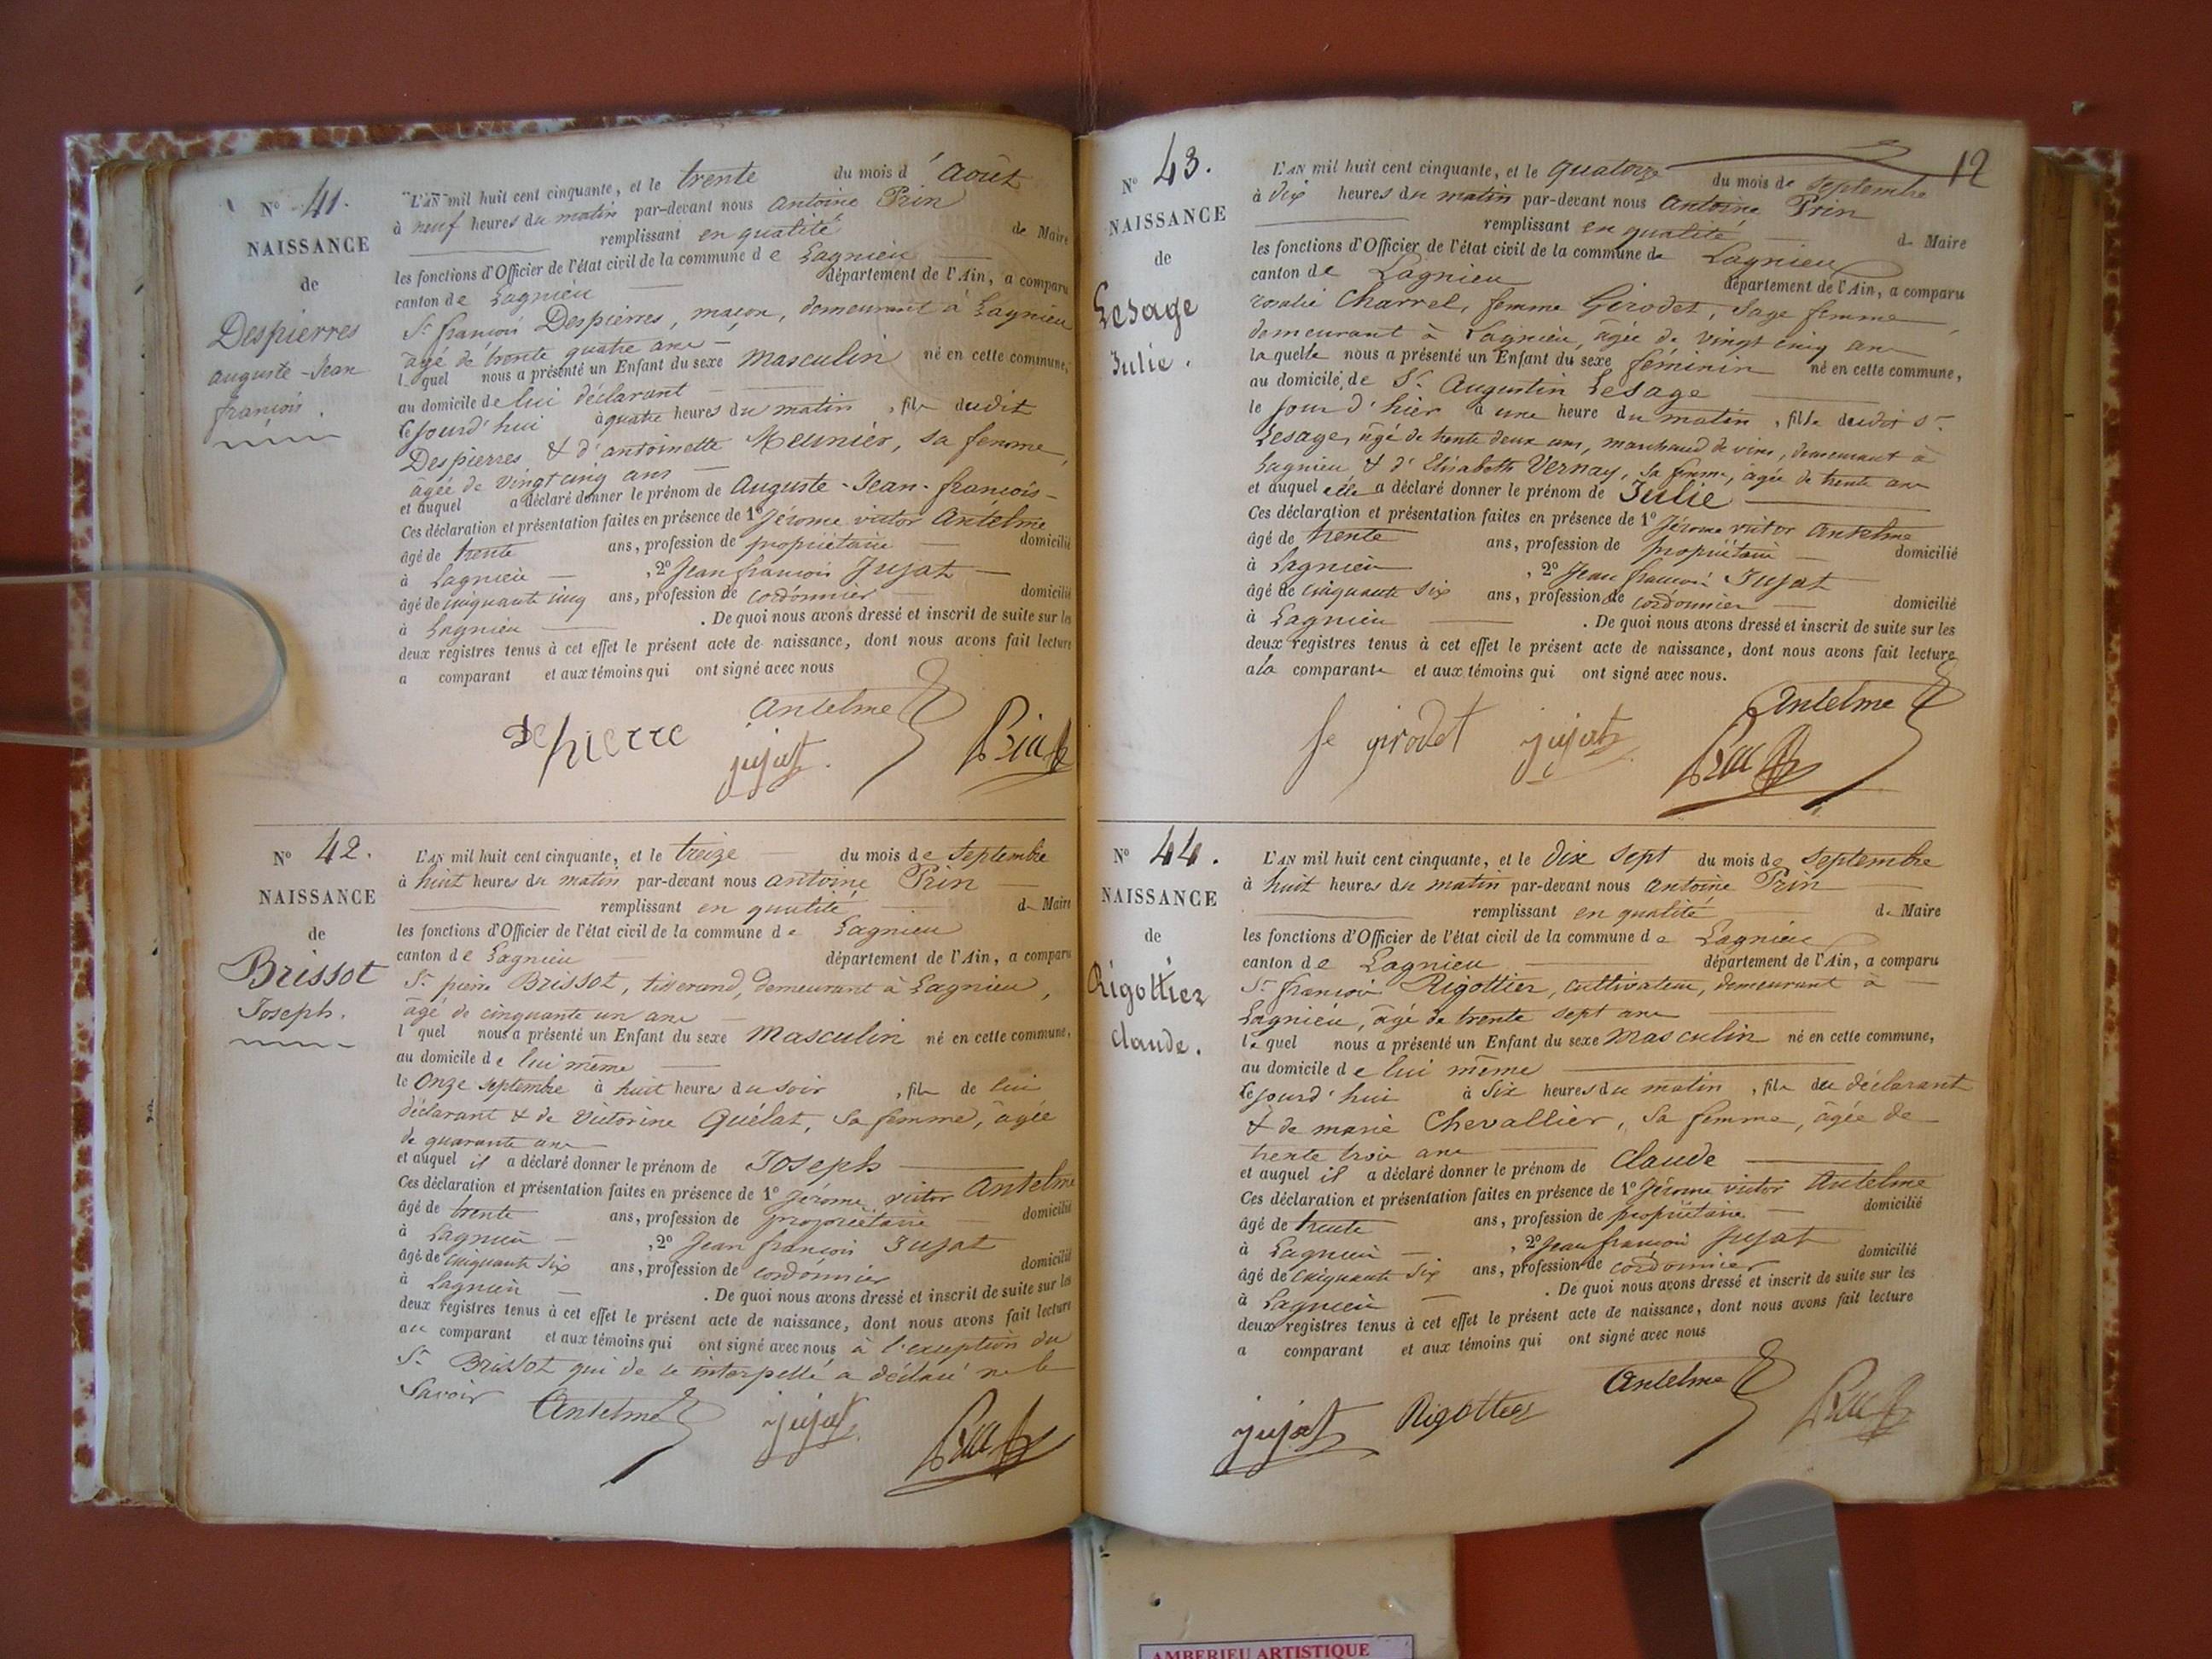 N° 41.
NAISSANCE
de
Despierres
auguste - Jean
françois.
L'AN mil huit cent cinquante, et le trente du mois d'Août
à neuf heures du matin par-devant nous antoine Prin
remplissant en qualité de Maire
les fonctions d'Officier de l'état civil de la commune de Lagnieu
canton de Lagnieu département de l'Ain, a comparu
Sr françois Despierres, maçon, demeurant à Lagnieu
âgé de trente quatre ans
l quel nous a présenté un Enfant du sexe Masculin né en cette commune,
au domicile de lui déclarant
cejourd'hui à quatre heures du matin, fils dudit
Despierres & d'antoinette Meunier, sa femme,
âgée de vingt cinq ans
et auquel a déclaré donner le prénom de Auguste - Jean - françois -
Ces déclaration et présentation faites en présence de 1° Jérome victor Antelme
âgé de trente ans, profession de propriétaire domicilié
à Lagnieu, 2° Jean françois Jujat
âgé de cinquante cinq ans, profession de cordonnier domicilié
à Lagnieu. De quoi nous avons dressé et inscrit de suite sur les
deux registres tenus à cet effet le présent acte de naissance, dont nous avons fait lecture
a comparant et aux témoins qui ont signé avec nous
Antelme
depierre jujat Prin
N° 42.
NAISSANCE
de
Brissot
Joseph.
L'AN mil huit cent cinquante, et le treize du mois de septembre
à huit heures du matin par-devant nous antoine Prin
remplissant en qualité de Maire
les fonctions d'Officier de l'état civil de la commune de Lagnieu
canton de Lagnieu département de l'Ain, a comparu
Sr pierre Brissot, tisserand, demeurant à Lagnieu,
âgé de cinquante un ans
l quel nous a présenté un Enfant du sexe Masculin né en cette commune,
au domicile de lui même
le Onze septembre à huit heures du soir, fils de lui
déclarant & de victorine Quélat, sa femme, âgée
de quarante ans
et auquel il a déclaré donner le prénom de Joseph
Ces déclaration et présentation faites en présence de 1° Jérome victor Antelme
âgé de trente ans, profession de propriétaire domicilié
à Lagnieu, 2° Jean françois Jujat
âgé de cinquante six ans, profession de cordonnier domicilié
à Lagnieu. De quoi nous avons dressé et inscrit de suite sur les
deux registres tenus à cet effet le présent acte de naissance, dont nous avons fait lecture
au comparant et aux témoins qui ont signé avec nous à l'exception du
Sr Brissot qui de ce interpellé a déclaré ne le
savoir Antelme jujat Prin
12
N° 43.
NAISSANCE
de
Lesage
Julie.
L'AN mil huit cent cinquante, et le quatorze du mois de septembre
à dix heures du matin par-devant nous antoine Prin
remplissant en qualité de Maire
les fonctions d'Officier de l'état civil de la commune de Lagnieu
canton de Lagnieu département de l'Ain, a comparu
rosalie Charrel, femme Girodet, sage femme,
demeurant à Lagnieu, âgée de vingt cinq ans
la quelle nous a présenté un Enfant du sexe féminin né en cette commune,
au domicile de Sr Augustin Lesage
le jour d'hier à une heure du matin, fille dudit Sr
Lesage, âgé de trente deux ans, marchand de vins, demeurant à
Lagnieu & d'Elisabeth Vernay, sa femme, âgée de trente ans
et auquel elle a déclaré donner le prénom de Julie
Ces déclaration et présentation faites en présence de 1° Jérome victor Antelme
âgé de trente ans, profession de propriétaire domicilié
à Lagnieu, 2° Jean françois Jujat
âgé de cinquante six ans, profession de cordonnier domicilié
à Lagnieu. De quoi nous avons dressé et inscrit de suite sur les
deux registres tenus à cet effet le présent acte de naissance, dont nous avons fait lecture
a la comparante et aux témoins qui ont signé avec nous.
Antelme
fe girodet jujat Prin
N° 44.
NAISSANCE
de
Rigottier
claude.
L'AN mil huit cent cinquante, et le Dix sept du mois de septembre
à huit heures du matin par-devant nous antoine Prin
remplissant en qualité de Maire
les fonctions d'Officier de l'état civil de la commune de Lagnieu
canton de Lagnieu département de l'Ain, a comparu
Sr françois Rigottier, cultivateur, demeurant à
Lagnieu, âgé de trente sept ans
le quel nous a présenté un Enfant du sexe Masculin né en cette commune,
au domicile de lui même
cejourd'hui à six heures du matin, fils du déclarant
& de marie Chevallier, sa femme, âgée de
trente trois ans
et auquel il a déclaré donner le prénom de Claude
Ces déclaration et présentation faites en présence de 1° Jérome victor Antelme
âgé de trente ans, profession de propriétaire domicilié
à Lagnieu, 2° Jean françois Jujat
âgé de cinquante six ans, profession de cordonnier domicilié
à Lagnieu. De quoi nous avons dressé et inscrit de suite sur les
deux registres tenus à cet effet le présent acte de naissance, dont nous avons fait lecture
a comparant et aux témoins qui ont signé avec nous
Antelme
jujat Rigottier Prin
AMBERIEU ARTISTIQUE